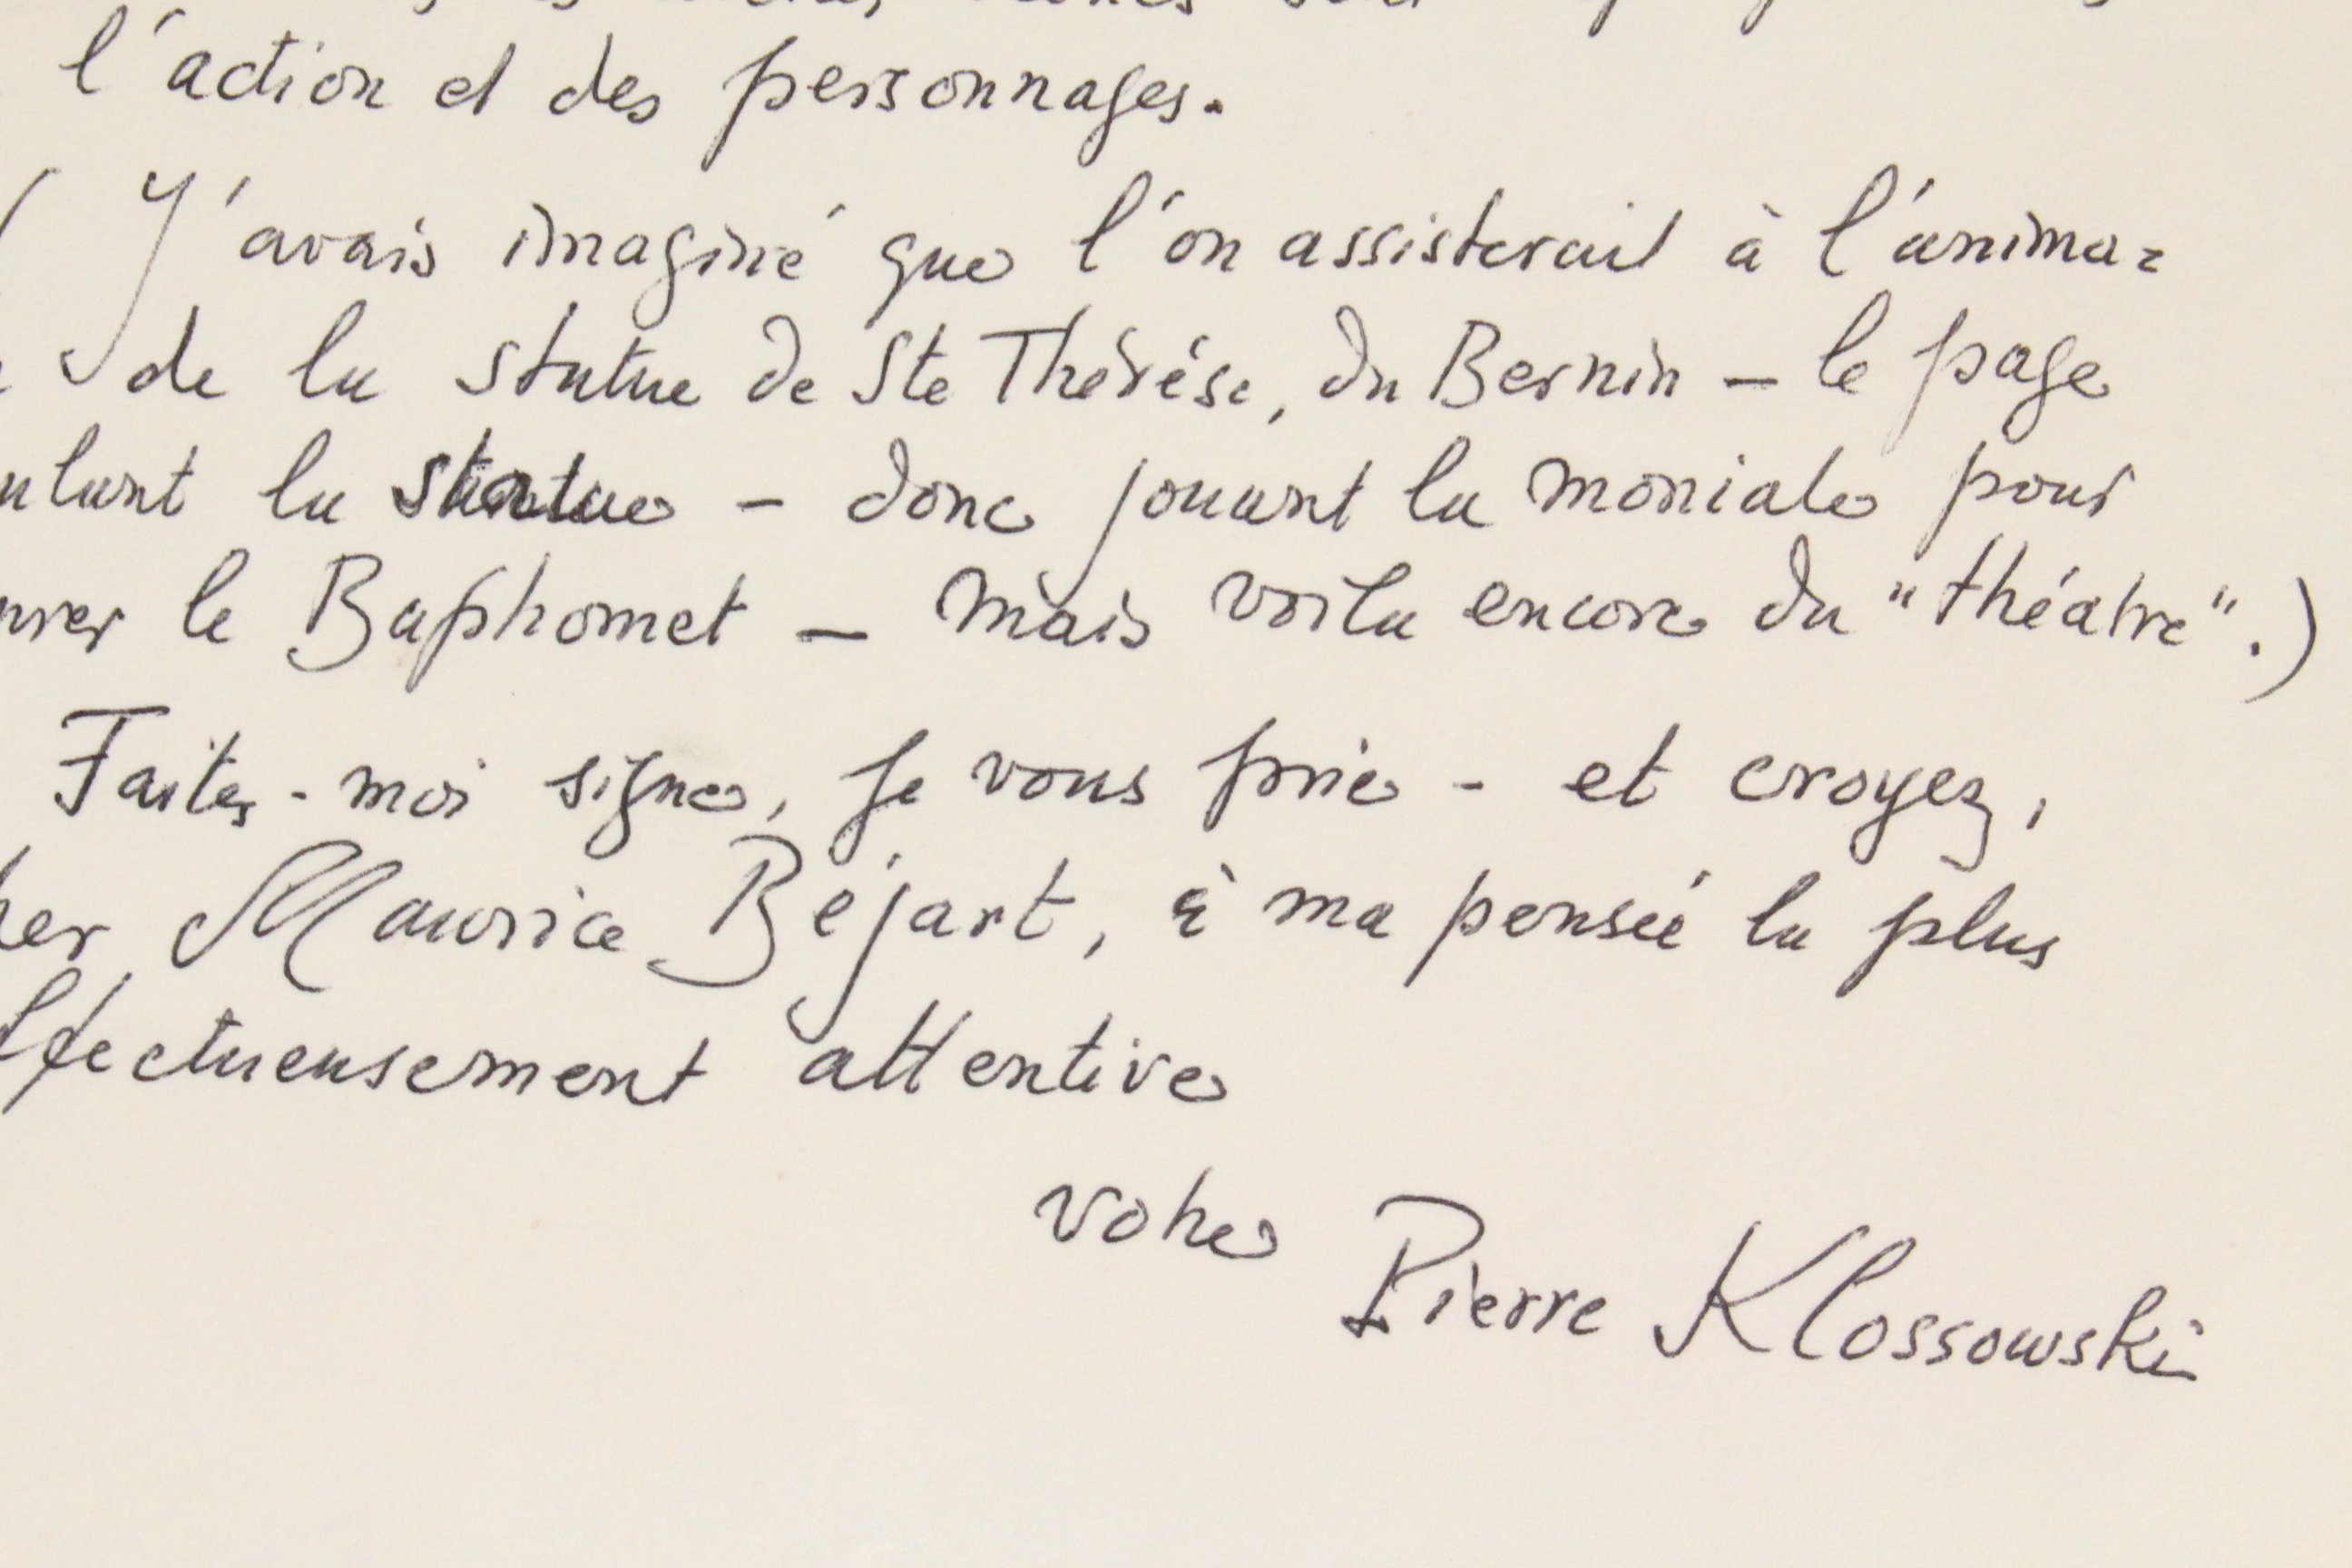 l'action et des personnages.
( J'avais imaginé que l'on assisterait à l'anima=
de la statue de Ste Thérèse, du Bernin – le page
la statue – donc jouant la moniale pour
le Baphomet – mais voilà encore du "théatre".)
Faites-moi signe, je vous prie - et croyez,
Maurice Béjart, à ma pensée la plus
ffectueusement attentive
votre Pierre Klossowski